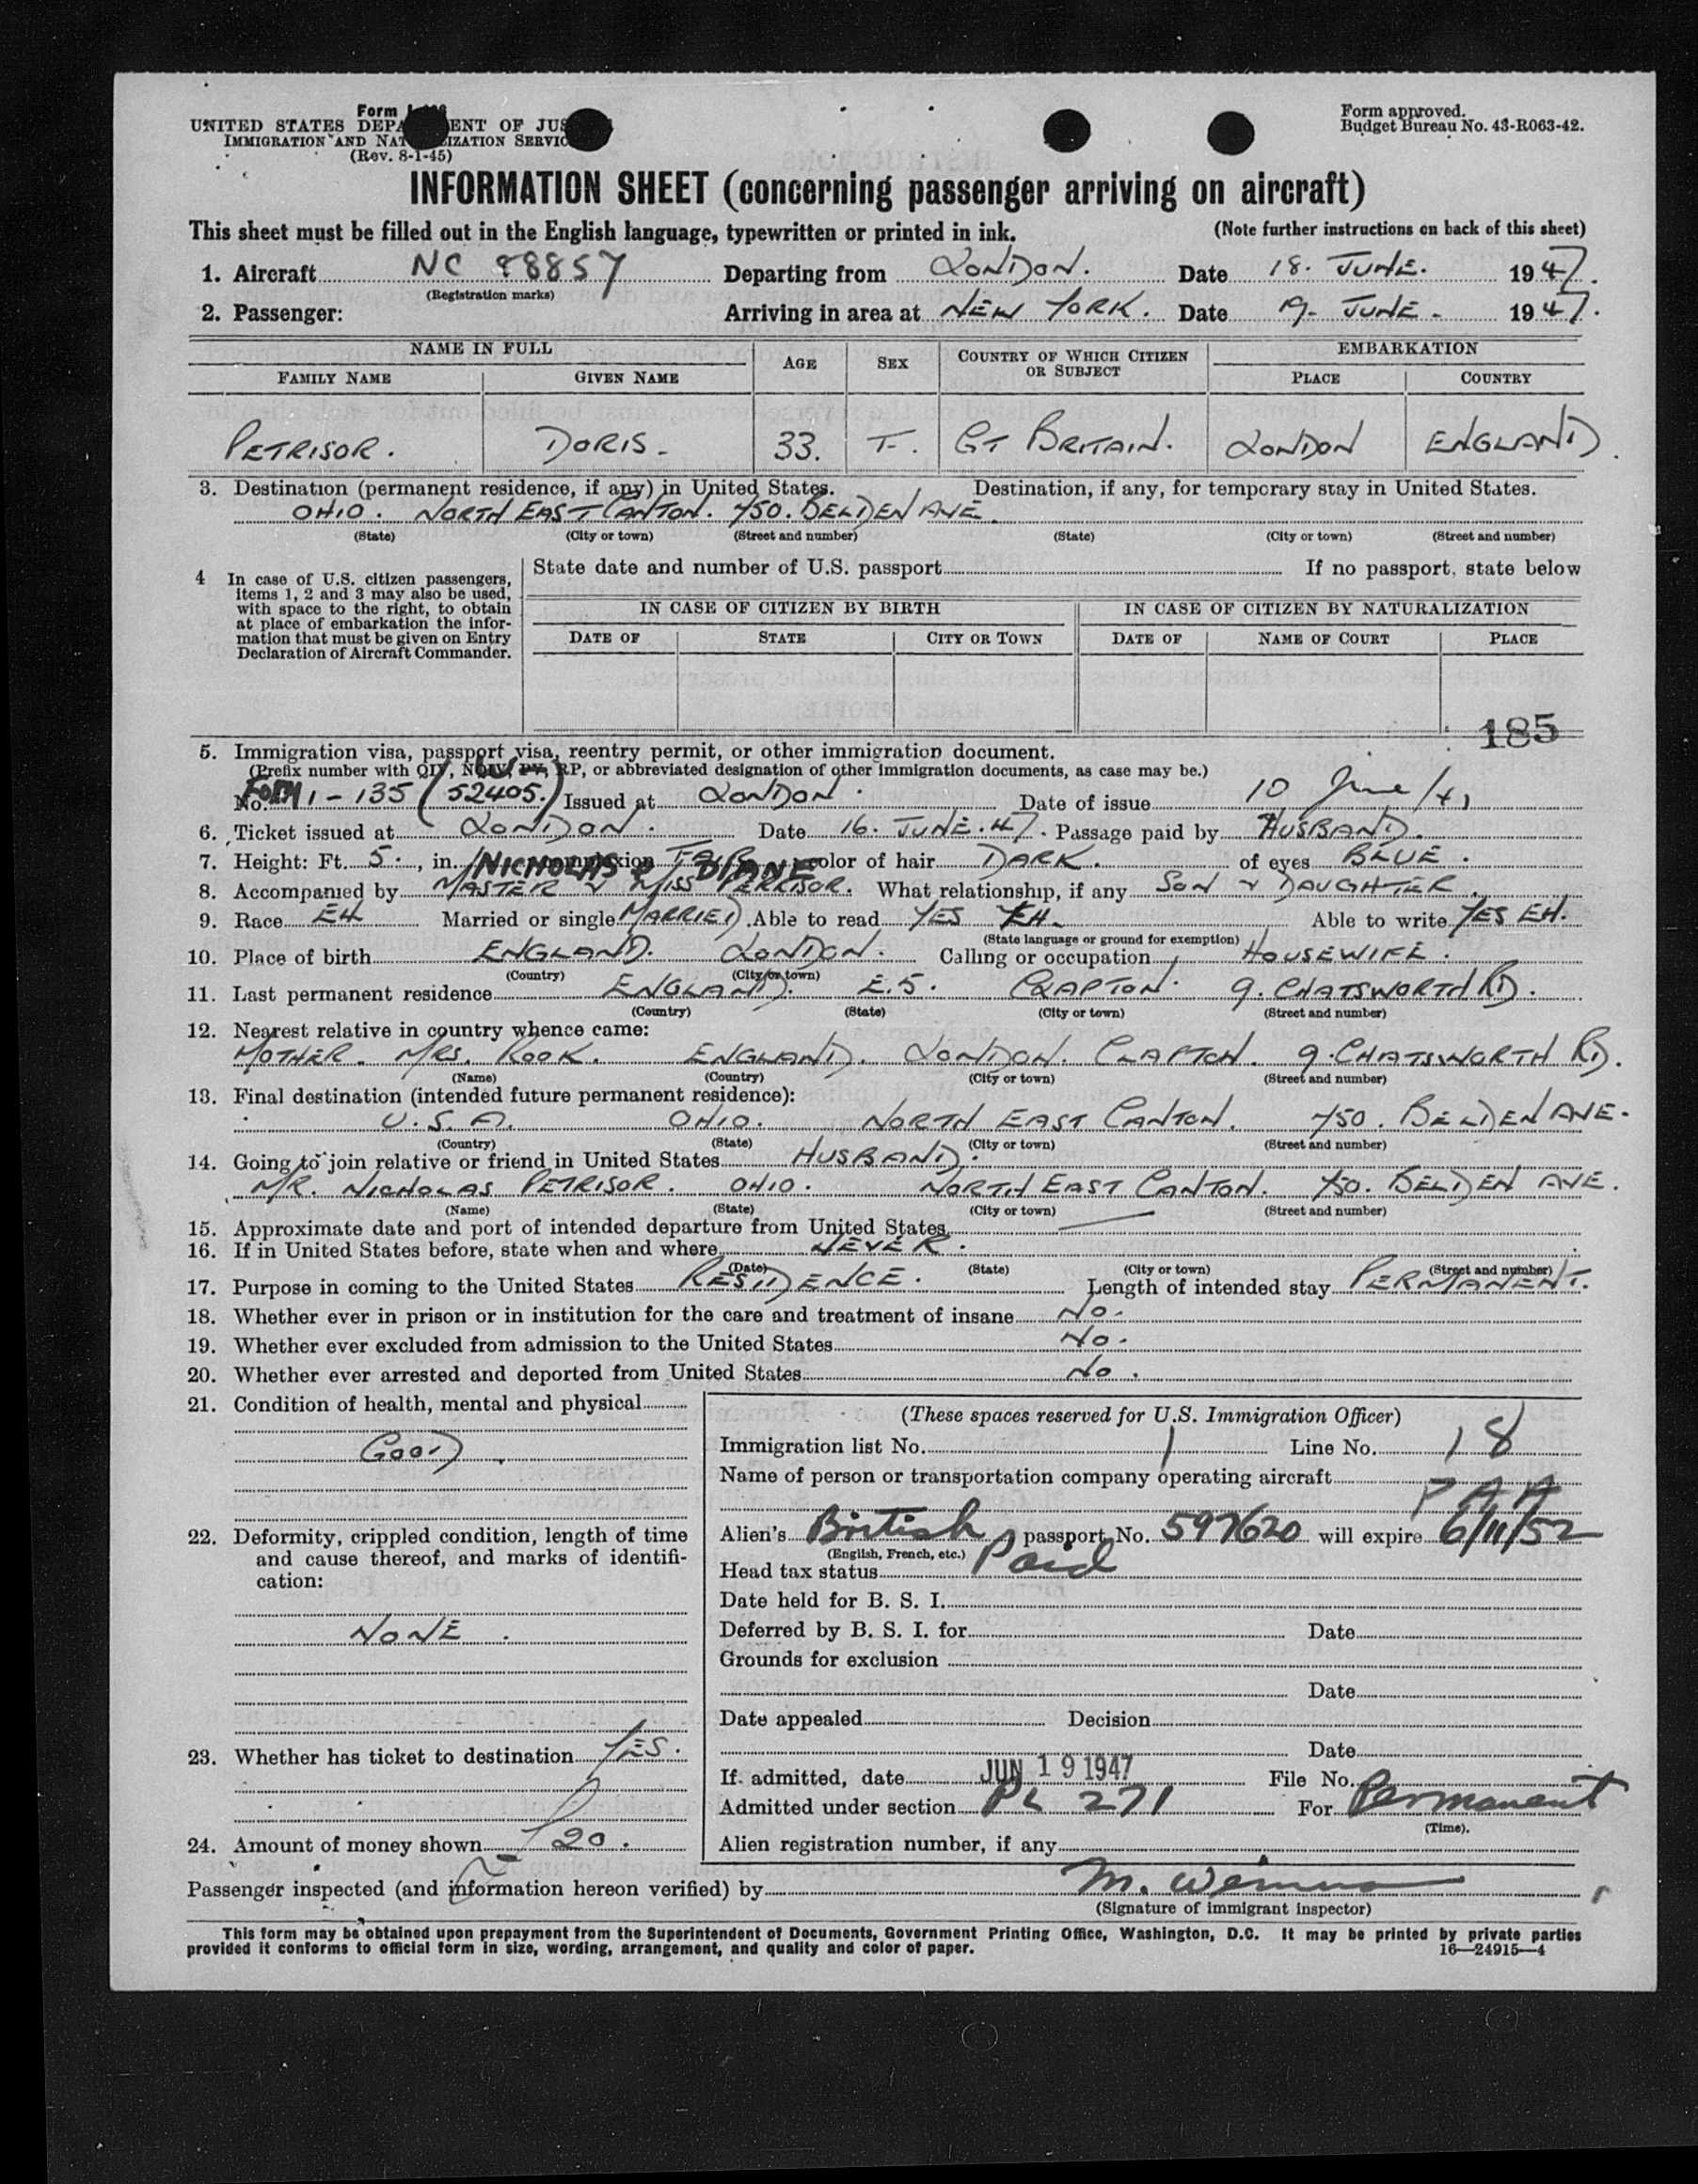 Form
UNITED STATES DEPA ENT OF JUS
IMMIGRATION AND NAT IZATION SERVIC
(Rev. 8-1-45)
Form approved.
Budget Bureau No. 43-R063-42.
INFORMATION SHEET (concerning passenger arriving on aircraft)
This sheet must be filled out in the English language, typewritten or printed in ink. (Note further instructions on back of this sheet)
1. Aircraft NC 88857 Departing from LONDON. Date 18. JUNE. 1947.
(Registration marks)
2. Passenger: Arriving in area at NEW YORK. Date 19- JUNE - 1947.
NAME IN FULL AGE SEX COUNTRY OF WHICH CITIZEN OR SUBJECT EMBARKATION
FAMILY NAME GIVEN NAME PLACE COUNTRY
PETRISOR. DORIS- 33. F. GT BRITAIN. LONDON ENGLAND.
3. Destination (permanent residence, if any) in United States. Destination, if any, for temporary stay in United States.
OHIO. NORTH EAST CANTON. 750. BELDEN AVE.
(State) (City or town) (Street and number) (State) (City or town) (Street and number)
4 In case of U.S. citizen passengers,
items 1, 2 and 3 may also be used,
with space to the right, to obtain
at place of embarkation the infor-
mation that must be given on Entry
Declaration of Aircraft Commander.
State date and number of U.S. passport If no passport, state below
IN CASE OF CITIZEN BY BIRTH IN CASE OF CITIZEN BY NATURALIZATION
DATE OF STATE CITY OR TOWN DATE OF NAME OF COURT PLACE
185
5. Immigration visa, passport visa, reentry permit, or other immigration document.
(Prefix number with QIV, NQIV, PV, RP, or abbreviated designation of other immigration documents, as case may be.)
No. FORM I-135 (52405.) Issued at LONDON. Date of issue 10 June/47
6. Ticket issued at LONDON. Date 16. JUNE. 47. Passage paid by HUSBAND.
7. Height: Ft. 5., in. complexion FAIR color of hair DARK. of eyes BLUE.
NICHOLAS & DIANE
8. Accompanied by MASTER & MISS PETRISOR. What relationship, if any SON & DAUGHTER.
9. Race EH Married or single MARRIED. Able to read YES EH. Able to write YES EH.
(State language or ground for exemption)
10. Place of birth ENGLAND. LONDON. Calling or occupation HOUSEWIFE.
(Country) (City or town)
11. Last permanent residence ENGLAND. E.5. CLAPTON. 9. CHATSWORTH RD.
(Country) (State) (City or town) (Street and number)
12. Nearest relative in country whence came:
MOTHER. MRS. ROOK. ENGLAND. LONDON. CLAPTON. 9. CHATSWORTH RD.
(Name) (Country) (City or town) (Street and number)
13. Final destination (intended future permanent residence):
U. S. A. OHIO. NORTH EAST CANTON. 750. BELDEN AVE.
(Country) (State) (City or town) (Street and number)
14. Going to join relative or friend in United States HUSBAND.
MR. NICHOLAS PETRISOR. OHIO. NORTH EAST CANTON. 750. BELDEN AVE.
(Name) (State) (City or town) (Street and number)
15. Approximate date and port of intended departure from United States
16. If in United States before, state when and where NEVER.
(Date) (State) (City or town) (Street and number)
17. Purpose in coming to the United States RESIDENCE. Length of intended stay PERMANENT.
18. Whether ever in prison or in institution for the care and treatment of insane No.
19. Whether ever excluded from admission to the United States No.
20. Whether ever arrested and deported from United States No.
21. Condition of health, mental and physical
GOOD.
22. Deformity, crippled condition, length of time
and cause thereof, and marks of identifi-
cation:
NONE.
23. Whether has ticket to destination YES.
24. Amount of money shown 20.
(These spaces reserved for U.S. Immigration Officer)
Immigration list No. 1 Line No. 18
Name of person or transportation company operating aircraft
PAA
Alien's British passport No. 597620 will expire 6/11/52
(English, French, etc.)
Head tax status Paid
Date held for B. S. I.
Deferred by B. S. I. for Date
Grounds for exclusion
Date
Date appealed Decision
Date
If admitted, date JUN 19 1947 File No.
Admitted under section PL 271 For Permanent
(Time).
Alien registration number, if any
Passenger inspected (and information hereon verified) by M.
(Signature of immigrant inspector)
This form may be obtained upon prepayment from the Superintendent of Documents, Government Printing Office, Washington, D.C. It may be printed by private parties
provided it conforms to official form in size, wording, arrangement, and quality and color of paper. 16—24915—4